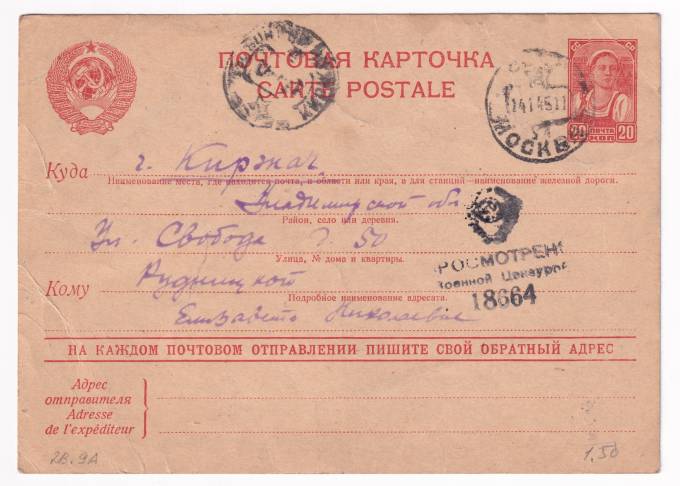 ПОЧТОВАЯ КАРТОЧКА
CARTE POSTALE
14 1 45 11
МОСКВА
20 ПОЧТА 20
КОП
Куда г. Киржач
Наименование места, где находится почта, и области или края, а для станций—наименование железной дороги.
Владимирской обл.
Район, село или деревня.
Ул. Свобода д. 50
Улица, № дома и квартиры.
ПРОСМОТРЕНО
Военной Цензурой
18664
Кому Рудницкой
Подробное наименование адресата.
Елизавете Николаевне
НА КАЖДОМ ПОЧТОВОМ ОТПРАВЛЕНИИ ПИШИТЕ СВОЙ ОБРАТНЫЙ АДРЕС
Адрес
отправителя
Adresse
de l'expéditeur
2В.9А
1.50